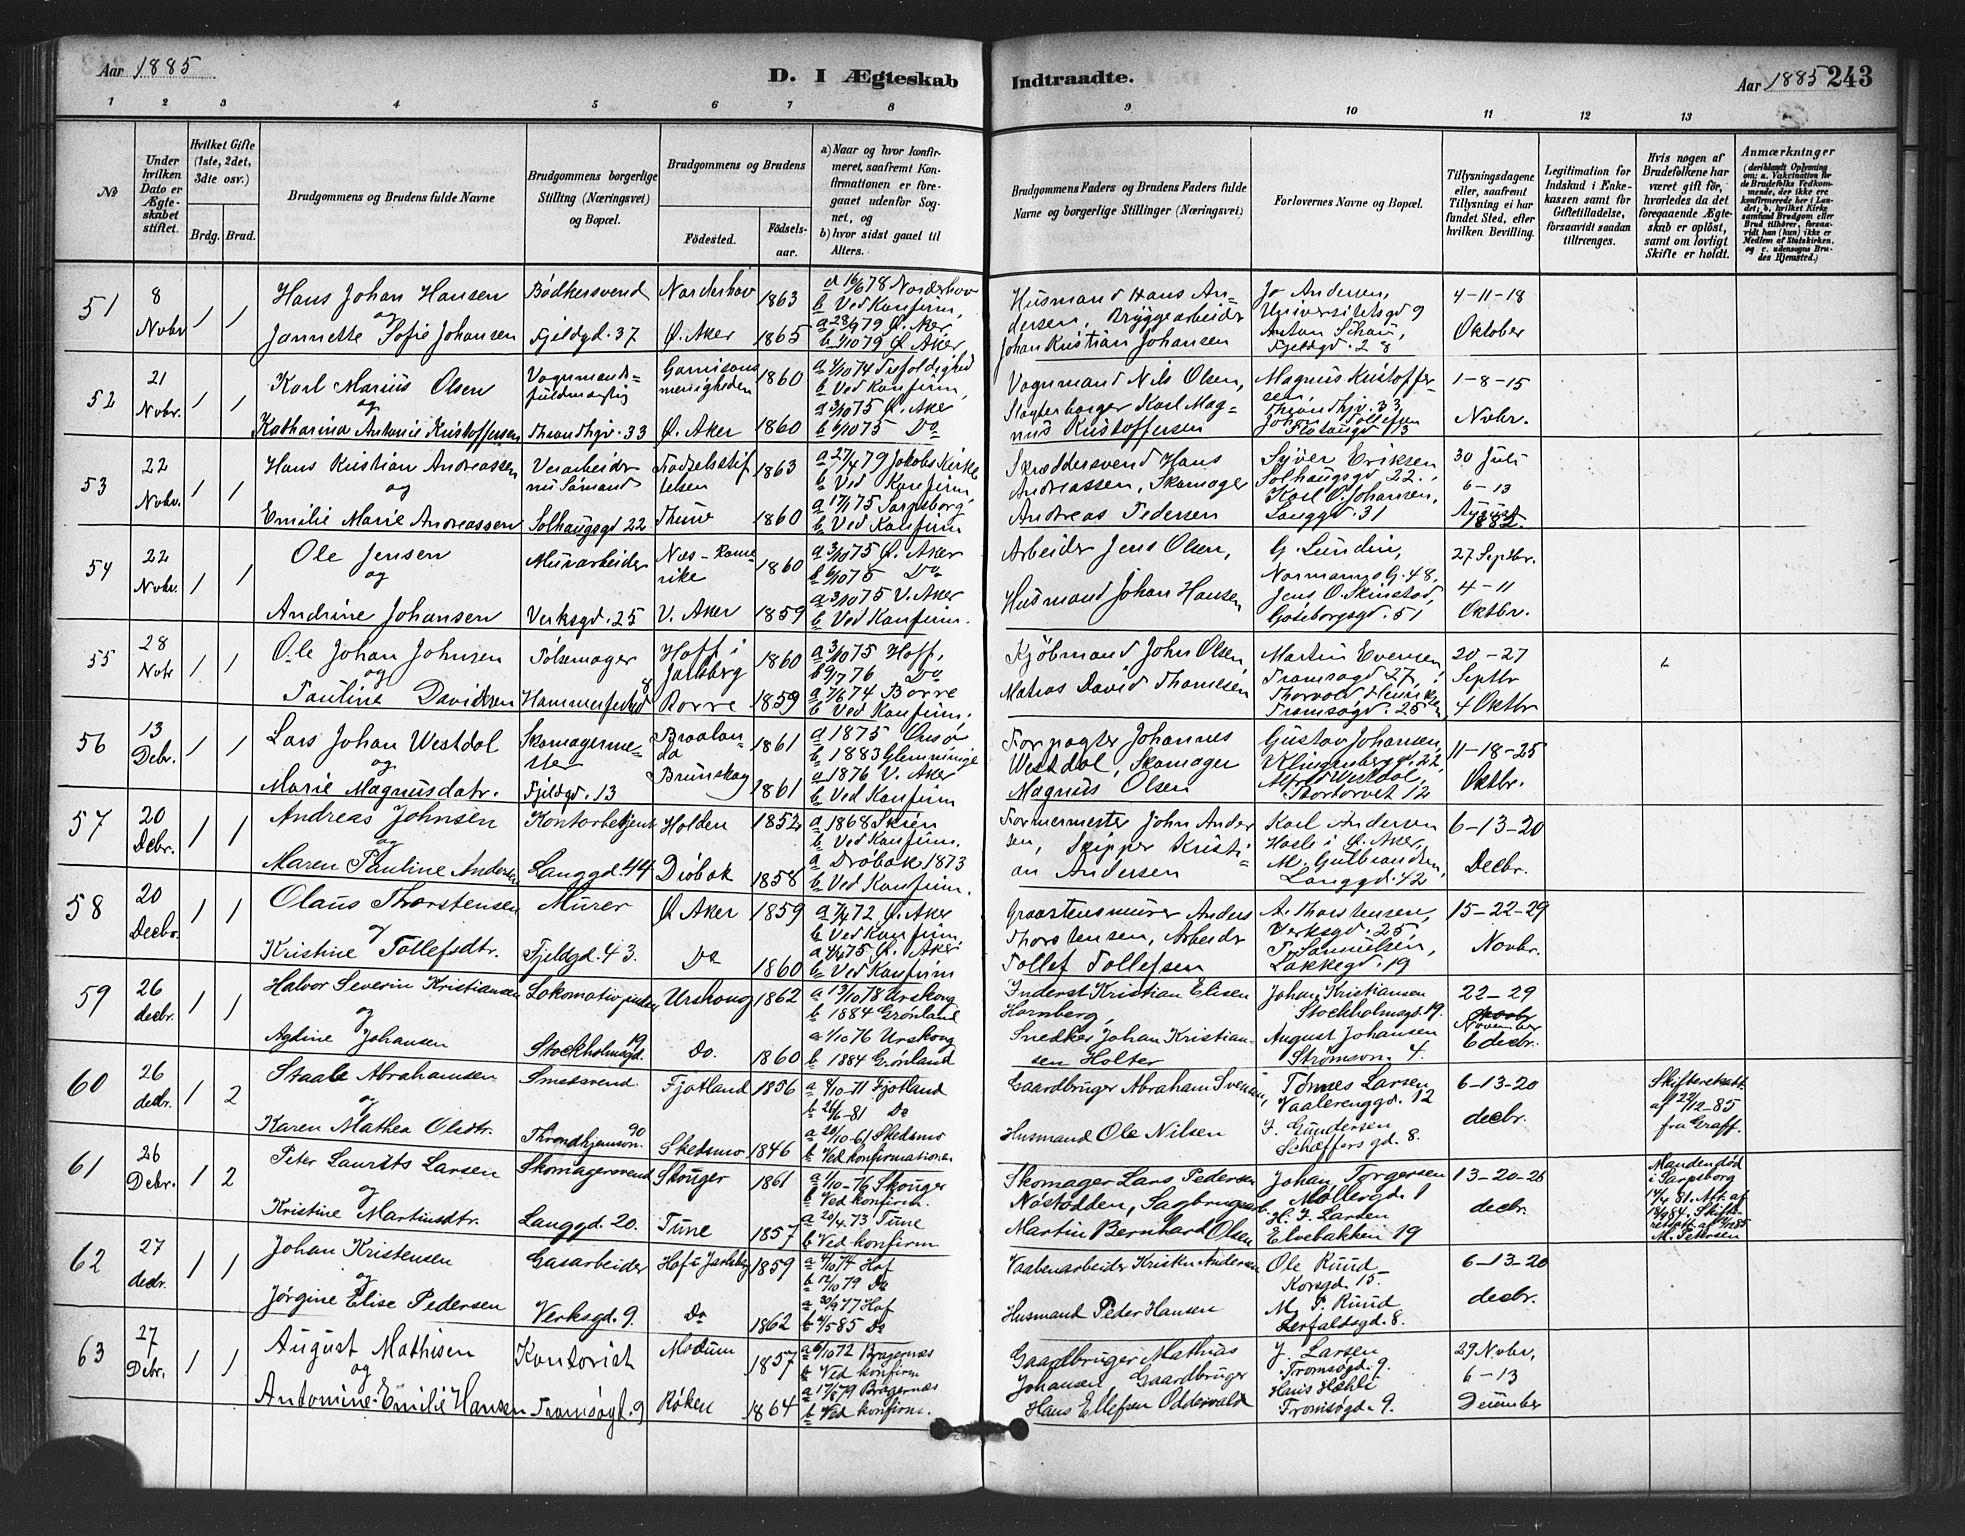 Aar 1885
D. I Ægteskab Indtraadte.
Aar 1885 243
1 2 3 4 5 6 7 8 9 10 11 12 13
No
Under hvilken Dato er Ægteskabet stiftet.
Hvilket Gifte (1ste, 2det, 3die osv.)
Brdg. Brud.
Brudgommens og Brudens fulde Navne
Brudgommens borgerlige Stilling (Næringsvei) og Bopæl.
Brudgommens og Brudens
Fødested. Fødsels-aar.
a) Naar og hvor konfirmeret, saafremt Konfirmationen er foregaaet udenfor Sognet, og
b) hvor sidst gaaet til Alters.
Brudgommens Faders og Brudens Faders fulde Navne og borgerlige Stillinger (Næringsvei)
Forlovernes Navne og Bopæl.
Tillysningsdagene eller, saafremt Tillysning ei har fundet Sted, efter hvilken Bevilling.
Legitimation for Indskud i Enkekassen samt for Giftetilladelse, forsaavidt saadan tiltrænges.
Hvis nogen af Brudefolkene har været gift før, hvorledes da det foregaaende Ægteskab er opløst, samt om lovligt Skifte er holdt.
Anmærkninger
(deriblandt Oplysning om: a. Vakcination for de Brudefolks Vedkommende, der ikke ere konfirmerede her i Landet; b. hvilket Kirkesamfund Brudgom eller Brud tilhører, forsaavidt han (hun) ikke er Medlem af Statskirken, og c. udensogns Brudes Hjemsted.)
51 8 Novbr 1 1
Hans Johan Hansen Bødkersvend Norderhov 1863 a 16/6 78 Norderhov b Ved Konfirm.
og
Jannette Sofie Johansen Fjeldgd. 37 Ø. Aker 1865 a 28/9 79 Ø. Aker b 1/10 79 Ø. Aker
Husmand Hans Andersen, Bryggearbeider Johan Kristian Johansen
Jo Andersen, Universitetsgd 9 Anton Schou, Fjeldgd. 28
4-11-18 Oktober
52 21 Novbr. 1 1
Karl Marius Olsen Vognmandsfuldmægtig Garnisonsmenigheden 1860 a 4/10 74 Trefoldighed b Ved Konfirm,
og
Katharina Antonie Kristoffersen Throndhjv. 33 Ø. Aker 1860 a 3/10 75 Ø. Aker b 6/10 75 Do
Vognmand Nils Olsen, Slagterborger Karl Magnus Kristoffersen
Magnus Kristoffersen, Throndhjv. 33 Johan Tollefsen
1-8-15 Novbr.
53 22 Novbr. 1 1
Hans Kristian Andreassen Verarbeider nu Sømand Fødselsstiftelsen 1863 a 27/4 79 Jakobs Kirke b Ved Konfirm,
og
Emilie Marie Andreassen Solhaugsgd 22 Thune 1860 a 17/1 75 Sarpsborg b Ved Konfirm
Skræddersvend Hans Andreassen, Skomager Andreas Pedersen
Syver Eriksen Solhaugsgd 22, Karl O. Johansen, Langgd 31
30 Juli 6-13 August 1882.
54 22 Novbr. 1 1
Ole Jensen Murarbeider Næs-Romerike 1860 a 3/10 75 Ø. Aker b 6/10 75 Do
og
Andrine Johansen Verksgd. 25 V. Aker 1859 a 3/10 75 V. Aker b Ved Konfirm.
Arbeider Jens Olsen, Husmand Johan Hansen
G. Lundin, Normannsg. 48, Jens O. Skinstad, Gøteborgsgd. 51
27 Septbr. 4-11 Oktbr.
55 28 Novbr 1 1
Ole Johan Johnsen Pølsemager Hoff i Jarlsberg 1860 a 3/10 75 Hoff, b 9/7 76 Do
og
Pauline Davidsen Hammerfestgd 8 Borre 1859 a 7/6 74 Borre b Ved Konfirm.
Kjøbmand John Olsen, Matros David Thomesen
Martin Evensen, Tromsøgd 27, Thorvald Henriksen, Tromsøgd. 25
20-27 Septbr 4 Oktbr
56 13 Debr. 1 1
Lars Johan Westdal Skomagermester 1861 a 1875 Onsø b 1883 Glemminge
og
Marie Magnusdatr. Fjeldgd. 13 Brunskog 1861 a 1876 V. Aker b Ved Konfirm
Forpagter Johannes Westdal, Skomager Magnus Olsen
Gustav Johansen, Klingenbergd. 22, Alfred Westdal, Stortorvet 12
11-18-25 Oktbr.
57 20 Debr. 1 1
Andreas Johnsen Kontorbetjent Holden 1852 a 1868 Skien b Ved Konfirm.
og
Maren Pauline Andersen Langgd. 44 Drøbak 1858 a Drøbak 1873 b Ved Konfirm.
Formermester John Andersen, Skipper Kristian Andersen
Karl Andersen Hasle i Ø. Aker, M. Gulbrandsen, Langgd. 42
6-13-20 Decbr.
58 20 Decbr. 1 1
Olaus Thorstensen Murer Ø. Aker 1859 a 7/4 72 Ø. Aker b Ved Konfirm.
og
Kristine Tollefsdtr. Fjeldgd. 43 Do 1860 a 4/4 75 Ø. Aker b Ved Konfirm
Graastensmurer Anders Thorstensen, Arbeider Tollef Tollefsen
A. Thorstensen, Verksgd. 25, T. Samuelsen, Lakkegd. 19
15-22-29 Novbr.
59 26 decbr. 1 1
Halvor Severin Kristiansen Lokomotivpudser Urskoug 1862 a 13/10 78 Urskoug b 1884 Grønland
og
Agtine Johansen Stockholmsgd. 19 Do. 1860 a 1/10 76 Urskoug b 1884 Grønland
Inderst Kristian Elisen Hornberg, Snedker Johan Kristiansen Holter
Johan Kristiansen Stockholmsgd. 19. August Johansen Strømsvn. 4.
22-29 Novbr November 6 decbr.
60 26 decbr. 1 2
Staale Abrahamsen Smedsvend Fjotland 1856 a 8/10-71 Fjotland b 26/6-81 Do
og
Karen Mathea Olsdtr. Throndhjemsvn. 90 Skedsmo 1846 a 20/10-61 Skedsmo b Ved konfirmationen
Gaardbruger Abraham Svensen, Husmand Ole Nilsen
Tønnes Larsen Vaalerenggd. 12 J. Gundersen Schæffersgd. 8.
6-13-20 decbr.
Skifteretsatt. af 22/12-85 fra Graff.
61 26 Debr. 1 2
Peter Laurits Larsen Skomagersvend Skouger 1861 a 1/10-76 Skouger b Ved konfirm.
og
Kristine Martinsdtr. Langgd. 20. Tune 1857 a 20/4 73 Tune b Ved konfirm
Skomager Lars Pedersen Nøstodden, Sagbrugsarb. Martin Bernhard Olsen
Johan Torgersen Møllergd. 1 H. J. Larsen Elvebakken 19
13-20-26 decbr.
Manden død i Sarpsborg 14/4 81. Att. af 18/9 84. Skifteretsatt. af 12/12 85 M. Petersen
62 27 decbr. 1 1
Johan Kristensen Gasarbeider Hof i Jarlsberg 1859 a 4/10 74 Hof b 12/10 79 Do
og
Jørgine Elise Pedersen Verksgd. 9. Do 1862 a 30/9 77 Hof b 4/5 85 Do
Vaabenarbeider Kristen Andersen Husmand Peder Hansen
Ole Ruud Korsgd. 15. M. P. Ruud Lerfaldsgd. 8.
6-13-20 decbr.
63 27 Debr. 1 1
August Mathisen Kontorist Modum 1857 a 6/10 72 Bragernæs b Ved konfirm
og
Antomine Emilie Hansen Tromsøgt. 9 Røken 1864 a 17/8 79 Bragernæs b Ved konfirm.
Gaardbruger Mathias Johansen Gaardbruger Hans Ellefsen Oddevald
J. Larsen Tromsøgd. 9. Hans Hæhli Tromsøgd. 9.
29 Novbr, 6-13 December